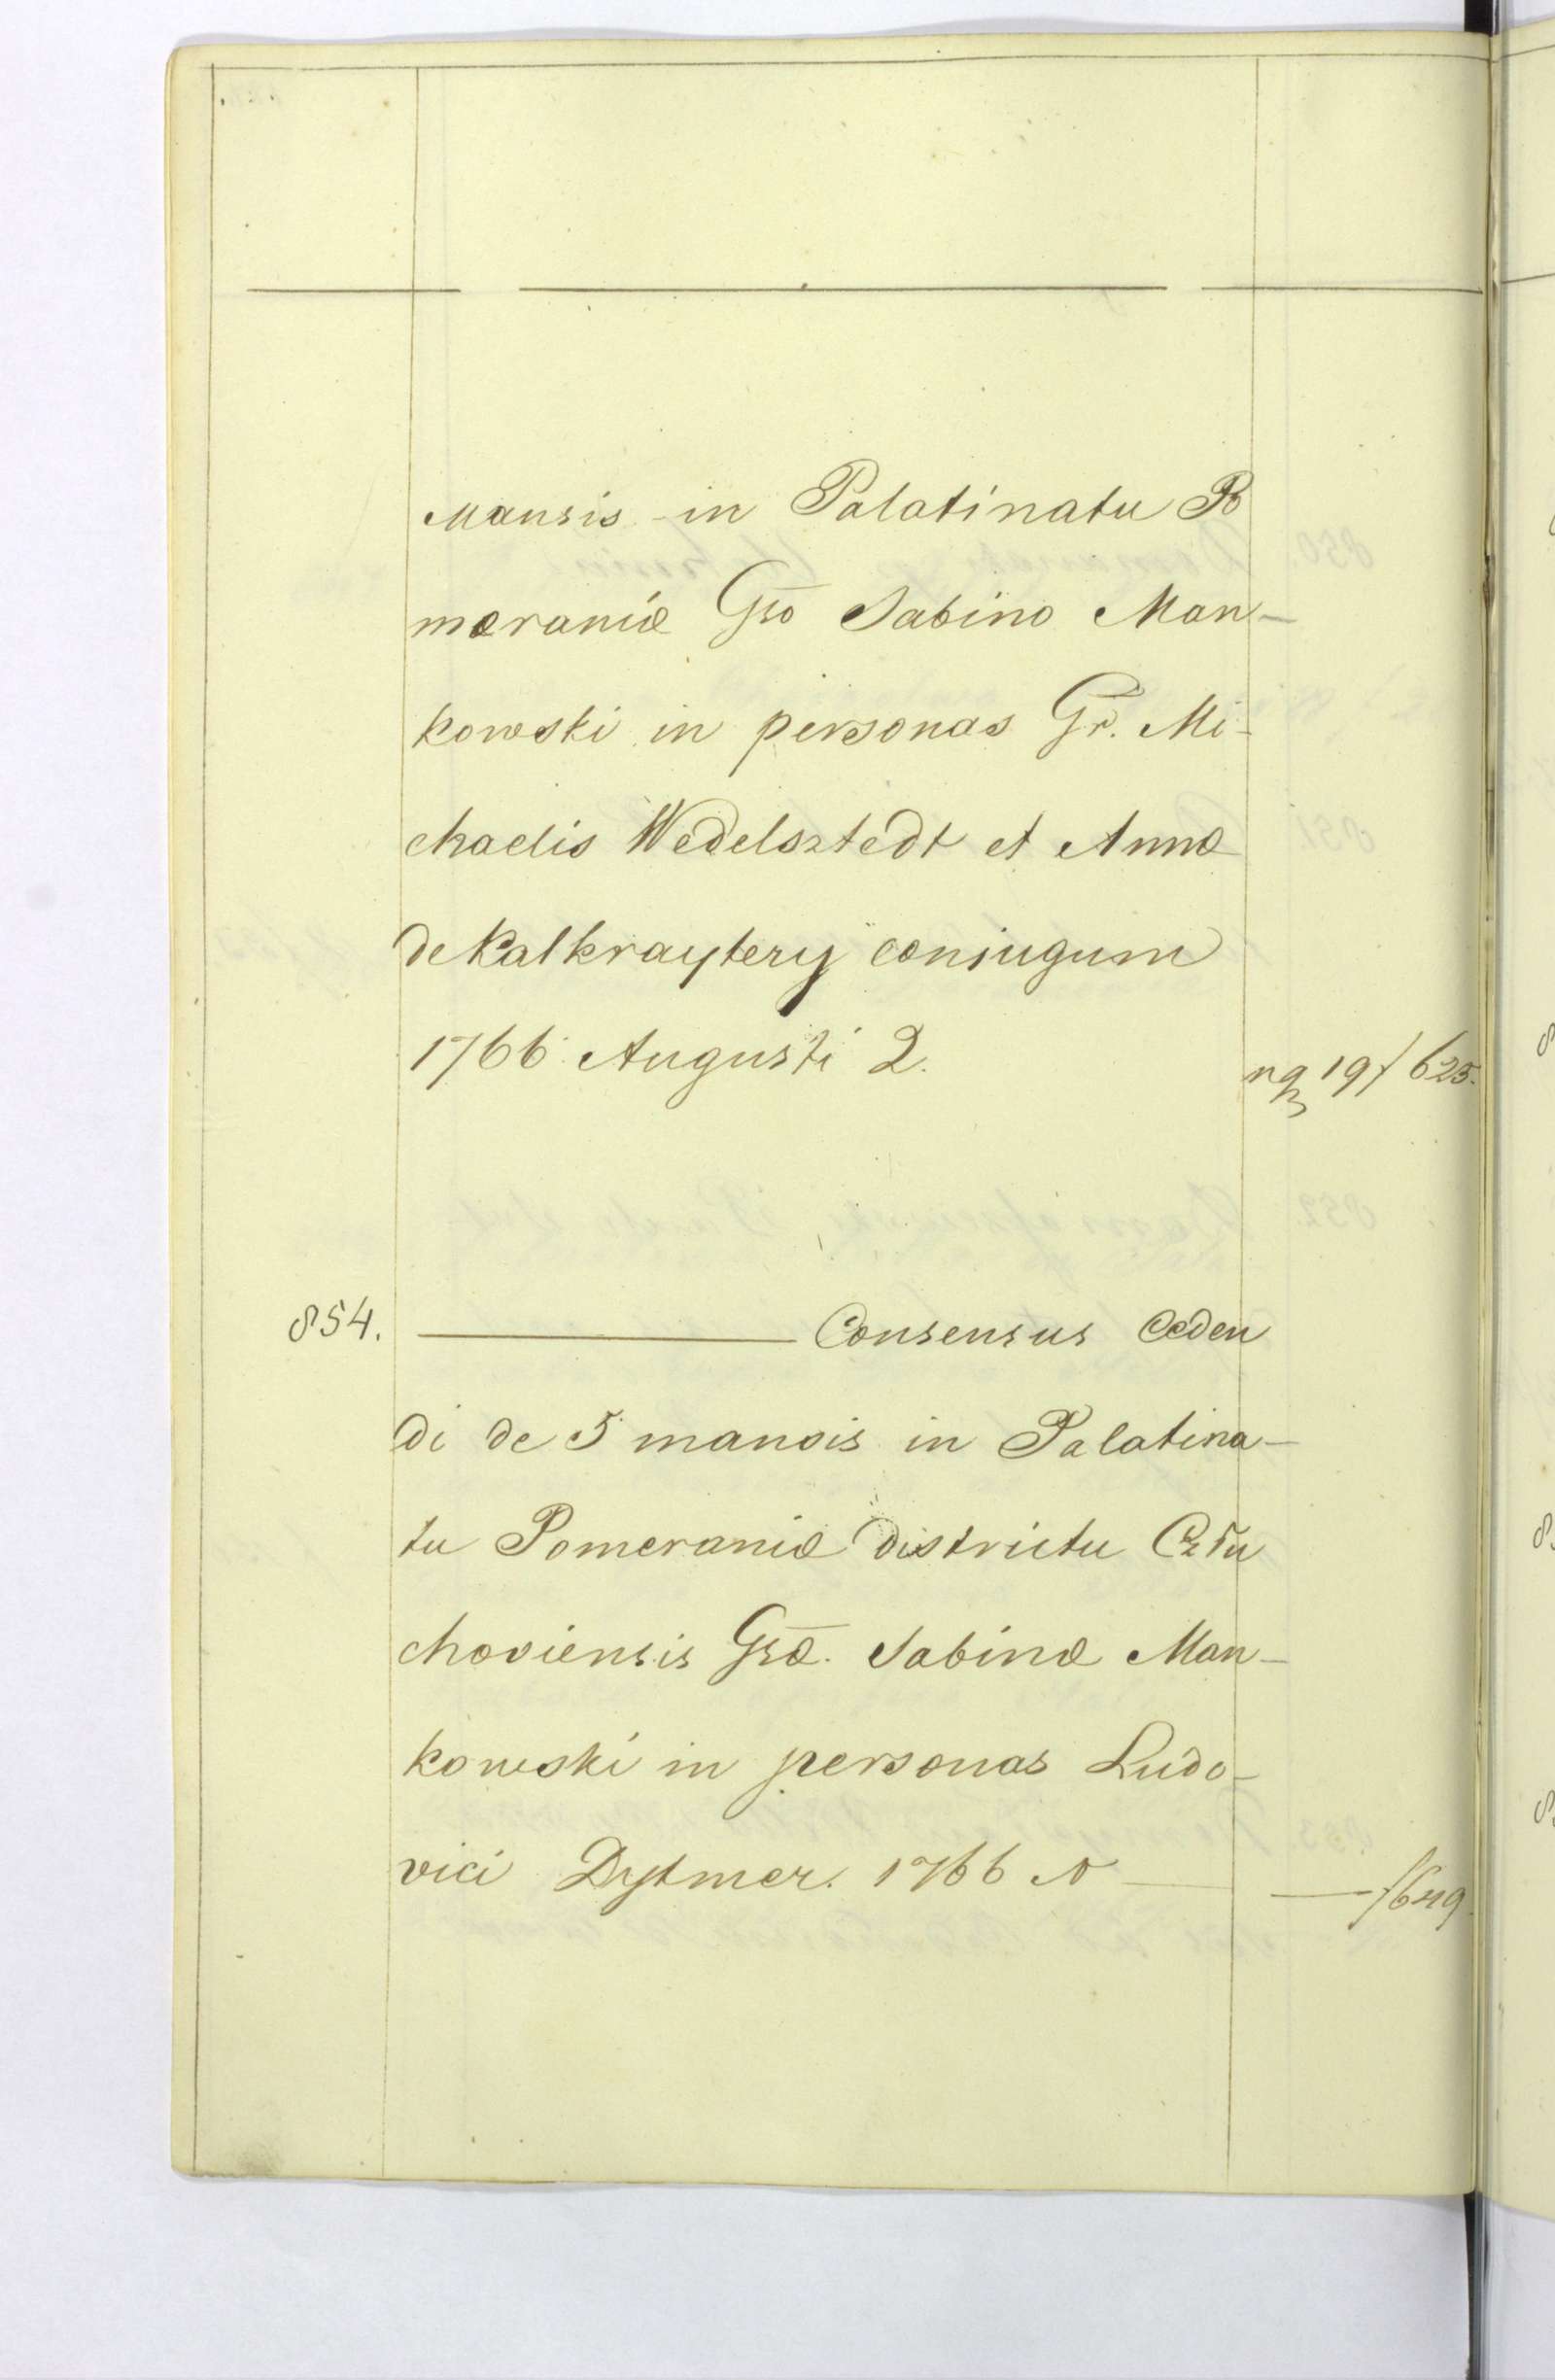 Mansis in Palatinatu Po
meraniæ Gso Sabino Man-
kowski in personas Gr. Mi-
chaelis Wedelsztedt et Annæ
de Kalkraytery coniugum
1766 Augusti 2. 19 f 625.
854. Consensus Ceden
di de 5 mansis in Palatina-
tu Pomeraniæ districtu Człu
choviensis Gsæ. Sabinæ Man-
kowski in personas Ludo-
vici Dytmer. 1766 f 649